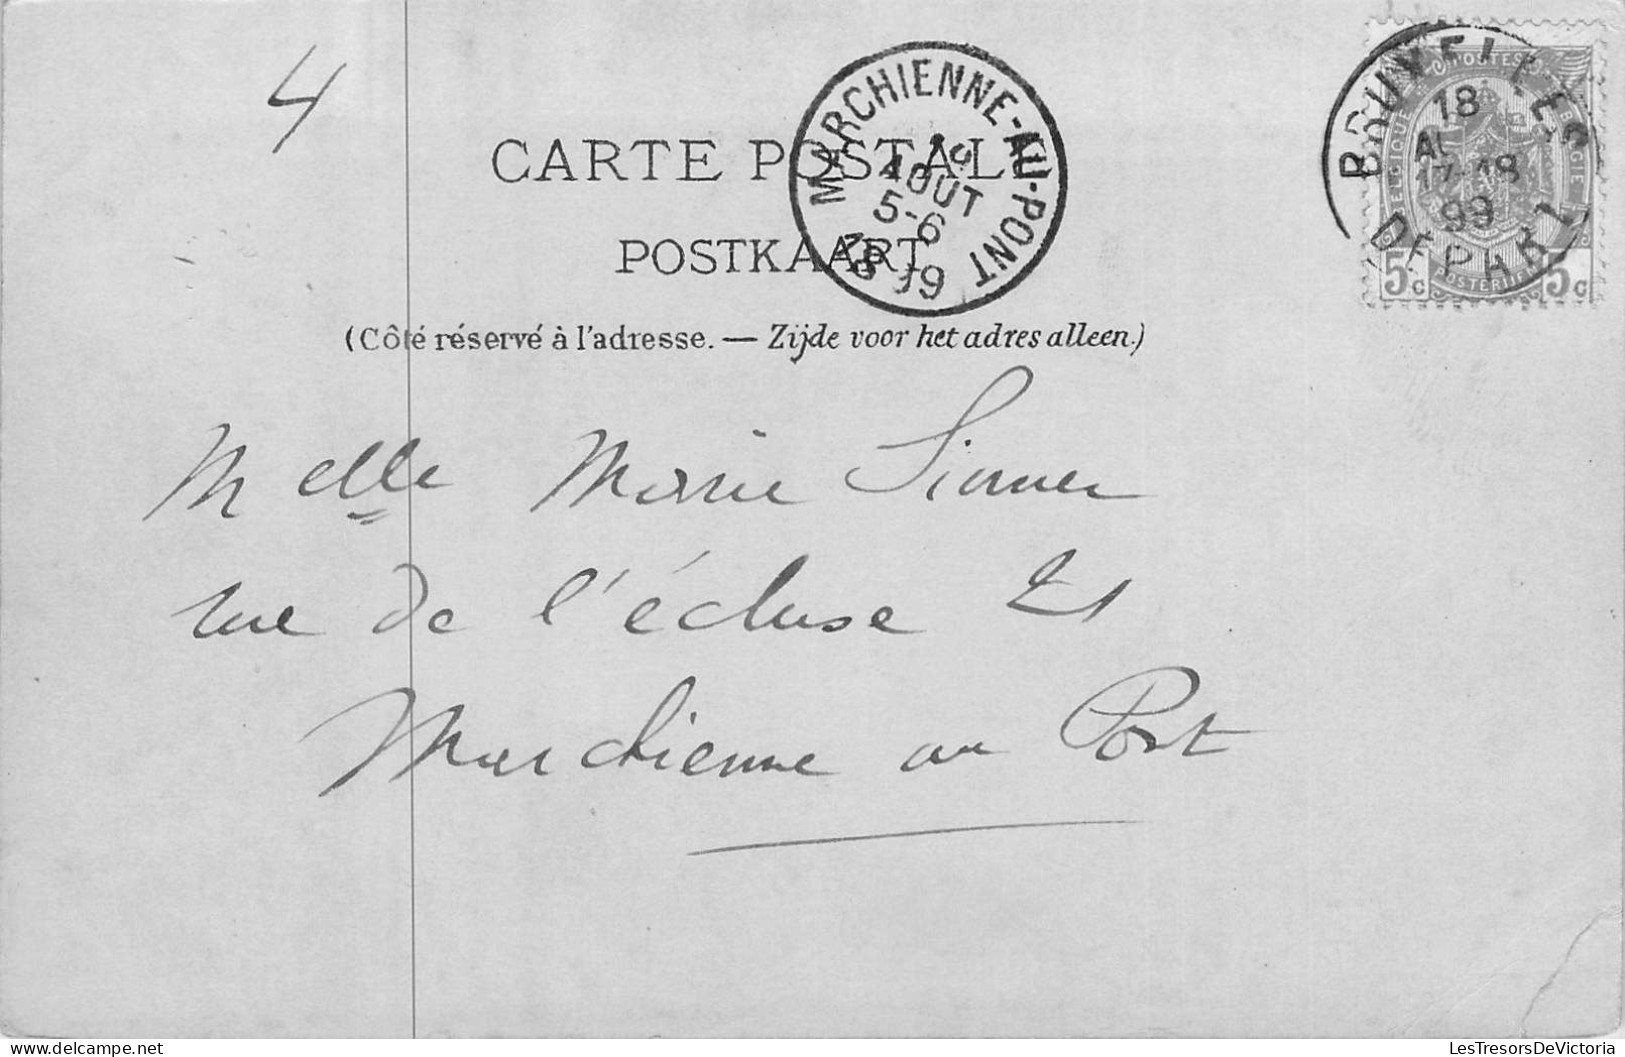 4
CARTE POSTALE
POSTKAART
(Côté réservé à l'adresse. — Zijde voor het adres alleen.)
MARCHIENNE-AU-PONT
19
AOUT
5-6
BRUXELLES
18
17-18
99
DÉPART
POSTES
BELGIQUE
BELGIE
POSTERIJEN
5c 5c
Melle Marie
rue de l'écluse 21
Marchienne au Pont
LesTresorsDeVictoria